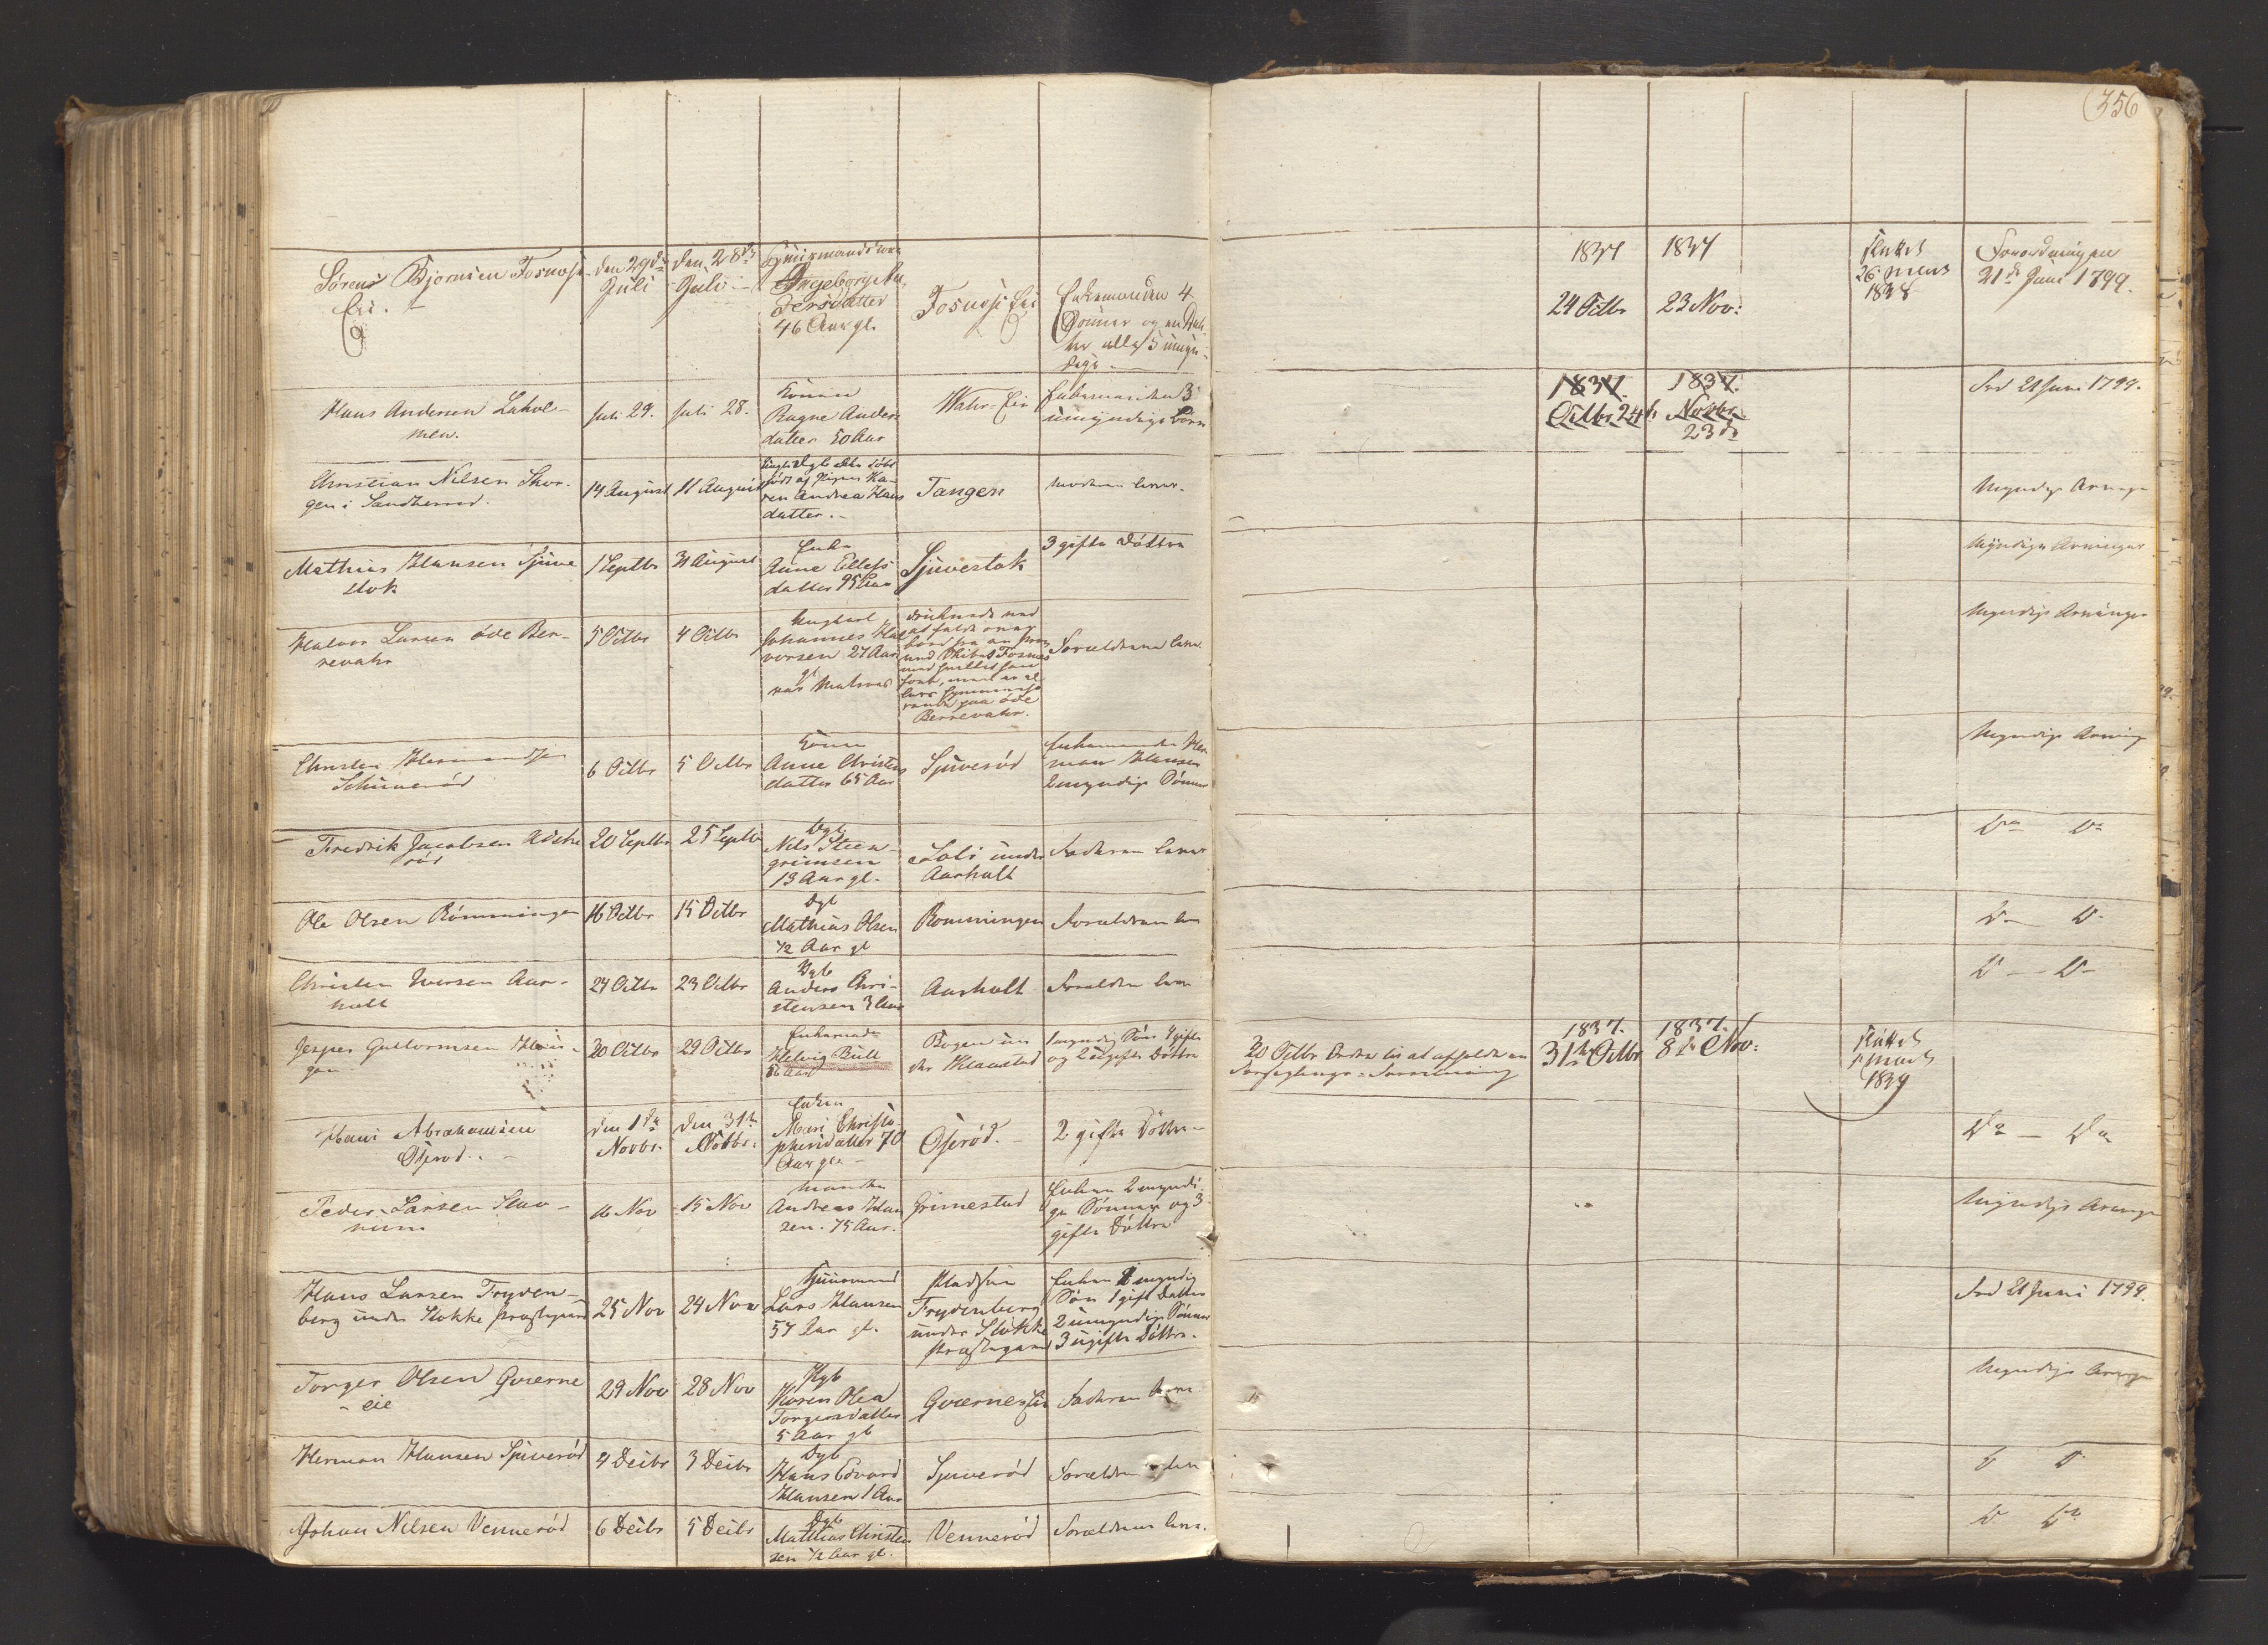 356
Sørens Bjørnsen Fosnæs
Eie.
den 29de
Juli
den 28de
Juli
Huusmandskone
Ingeborg An-
dersdatter
46 Aar gl.
Fosnæs Eie
Enkemanden 4
Sønner og en Dat-
ter alle 5 umyn-
dige
1837
24 Octbr
1837
23 Nov:
sluttet
26 Marts
1838
Forordningen
21de Juni 1799.
Hans Andersen Lahol-
men.
Juli 29.
Juli 28.
Konen
Ragne Anders
datter 50 Aar
Wahr-Eie
Enkemanden 3
umyndige Børn
1837.
Octbr 24de
1837.
Novbr
23de
Frd 21 Juni 1799.
Christian Nilsen Skor-
gen i Sandherred.
14 August
11 August
ren Andrea Hans
datter.
Tangen
Moderen lever.
Myndige Arvinger
Mathias Hansen Sjuve
stok
1 Septbr
31 August
Enke
Anne Ellefs
datter 95 Aar
Sjuvestok
3 gifte Døttre
Myndige Arvinger
Halvor Larsen øde Ber-
revahr
5 Octbr
4 Octbr
Ungkarl
Johannes Hal
vorsen 27 Aar
gl
var Matros
druknede ved
at falde over
bord fra
Skibet Fosnæs
paa øde
Berrevahr.
Forældrene leve.
Myndige Arvinger
Christen Hermandsen
Schuverød
6 Octbr
5 Octbr
Kone
Anne Christens
datter 65 Aar
Sjuverød
Enkemanden Her-
man Hansen
2 myndige Sønner
Myndige Arving
Fredrik Jacobsen
rød
20 Septbr
25 Septbr
Dgb
Nils Steen-
grimsen
13 Aar gl.
Loli under
Aarholt
Faderen lever
Do Do
Ole Olsen Rømmingen
16 Octbr
15 Octbr
Dgb
Mathias Olsen
1/2 Aar gl
Romningen
Forældrene leve
Do Do
Christen Iversen Aar-
holt
24 Octbr
23 Octbr
Dgb
Anders Chri-
stensen 3 Aar
Aarholt
Forældre leve
Do Do
Jesper Guttormsen Hau-
gan
30 Octbr
29 Octbr
Enkemadme
Helvig Bull
56 Aar
Bogen un
der Klavestad
1 myndig Søn 4 gifte
og 2 ugifte Døttre
30 Octbr Ordre til at afholde en
Forseglings-Forretning
1837.
31te Octbr
1837.
8de Nov:
sluttet
Marts
1839
Hans Abrahamsen
Oserød.
den 1de
Novbr.
den 31te
Octbr.
Enken
Mari Christo
phersdatter 70
Aar gl.
Oserød.
2 gifte Døttre
Do Do
Peder Larsen Stav-
num
16 Nov
15 Nov
Manden
Andreas Han
sen. 75 Aar.
Grimestad
Enken 2 myndi
ge Sønner og 3
gifte Døttre
Myndige Arvinger
Hans Larsen Fryden-
berg under Stokke Præstegaard
25 Nov
24 Nov
Huusmand
Lars Hansen
57 Aar gl.
Pladsen
Frydenberg
under Stokke
Præstegaard
Enken 1 myndig
Søn 1 gift Datter
2 umyndige Sønner
3 ugifte Døttre.
Frd 21 Juni 1799.
Torger Olsen Gvierne
eie
29 Nov
28 Nov
Pgb
Karen Olea
Torgersdatter
5 Aar gl
Gviernes Eie
Faderen lever
Myndige Arvinger
Herman Hansen Sjuverød
4 Decbr
3 Decbr
Dgb
Hans Edvard
Hansen 1 Aar
Sjuverød
Forældrene leve
Do Do
Johan Nilsen Vennerød
6 Decbr
5 Decbr
Dgb
Mathias Christen
sen 1/2 Aar gl.
Vennerød
Forældrene leve.
Do Do